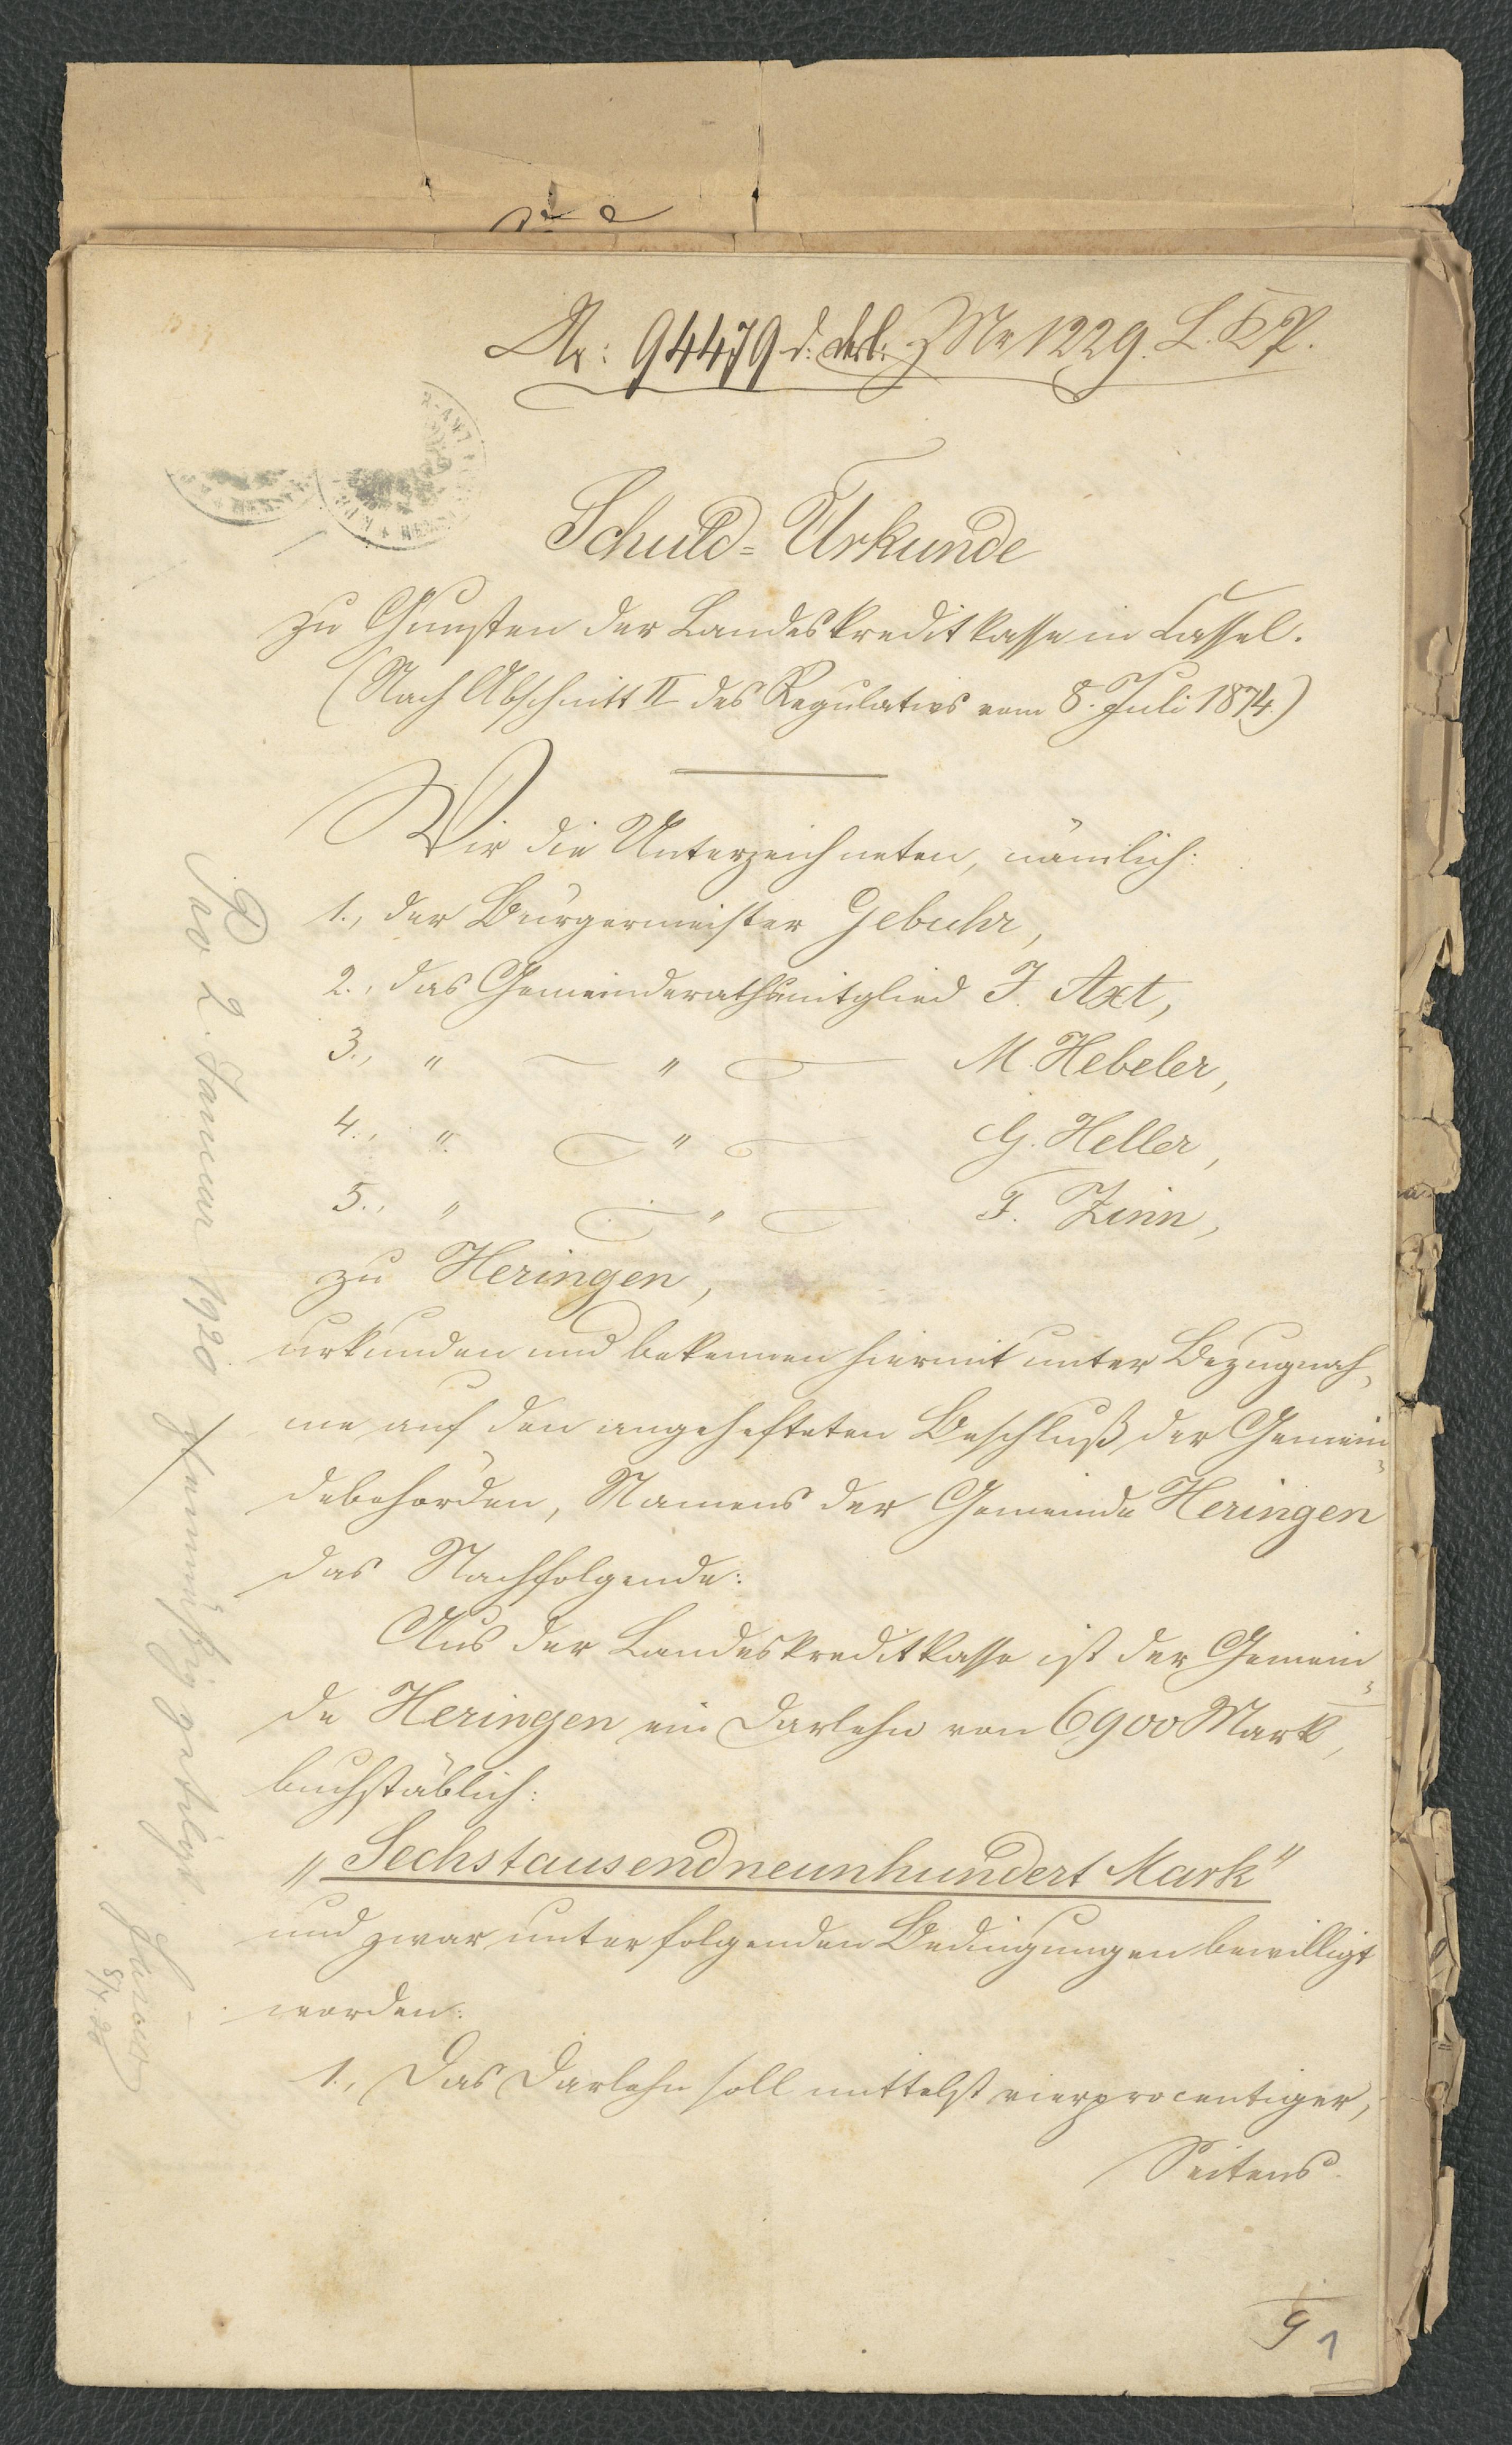 Nr: 94479 d. 1229. L.
Schuld-Urkunde
zu Gunsten der Landeskreditkasse in Cassel.
(Nach Abschnitt II des Regulativs vom 8. Juli 1874.)
Wir die Unterzeichneten, nämlich:
1., der Bürgermeister Gebuhr,
2., das Gemeinderathsmitglied J. Axt,
3., " — " — M. Hebeler,
4., " — " — G. Heller,
5., " — " — F. Zinn,
zu Heringen,
urkunden und bekennen hiermit unter Bezugnah-
me auf den angehefteten Beschluß der Gemein-
debehörden, Namens der Gemeinde Heringen
das Nachfolgende:
Aus der Landeskreditkasse ist der Gemein-
de Heringen ein Darlehn von 6900 Mark,
buchstäblich:
„Sechstausendneunhundert Mark"
und zwar unter folgenden Bedingungen bewilligt
worden:
1., Das Darlehn soll mittelst vierprocentiger,
Seitens
9 1
Pro 2. Januar 1920 planmäßig getilgt.